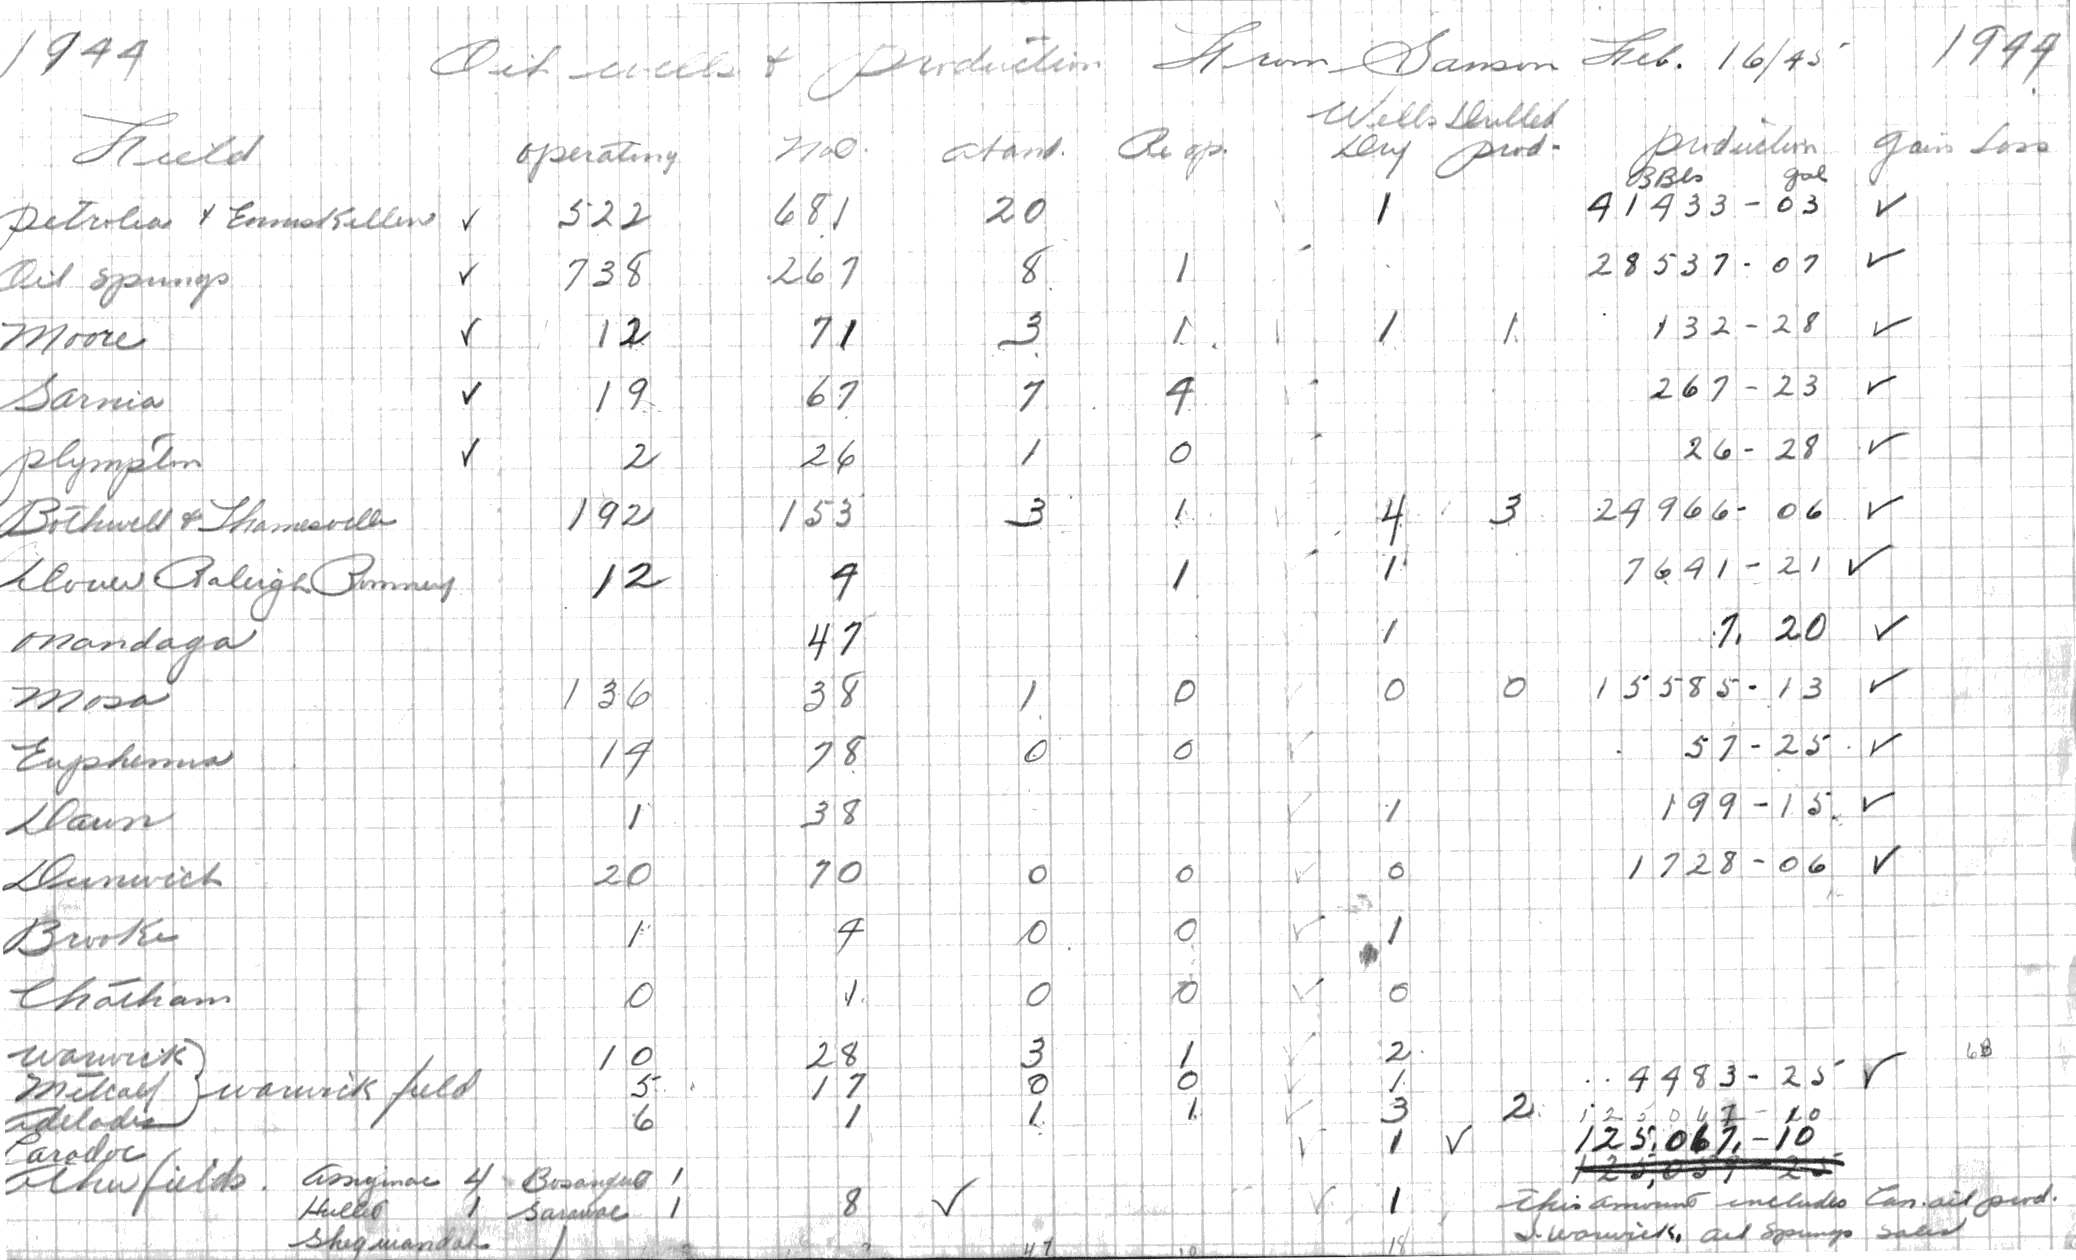 1944 Oil wells & production From Sanson Feb. 16/45 1944
Wells Drilled
Field operating no. aband. Re op. Dry prod- production gain Loss
BBls gal
Petrolea & Enniskillen ✓ 522 681 20 1 41433-03 ✓
Oil springs ✓ 738 267 8 1 28537-07 ✓
Moore ✓ 12 71 3 1 1 1 132-28 ✓
Sarnia ✓ 19 67 7 4 267-23 ✓
plympton ✓ 2 26 1 0 26-28 ✓
Bothwell & Thamesville 192 153 3 1 4 3 24966-06 ✓
Dover Raleigh Romney 12 4 1 1 7641-21 ✓
onandaga 47 1 7. 20 ✓
Mosa 136 38 1 0 0 0 15585-13 ✓
Euphemia 14 78 0 0 ✓ 57-25 ✓
Dawn 1 38 ✓ 1 199-15 ✓
Dunwich 20 70 0 0 ✓ 0 1728-06 ✓
Brooke 1 4 0 0 ✓ 1
Chatham 0 1 0 0 ✓ 0
Warwick 10 28 3 1 ✓ 2
Metcalf } warwick field 5 17 0 0 ✓ 1 4483-25 ✓
Adelade 6 1 1 1 ✓ 3 2 125067-10
Caradoc ✓ 1 ✓ 125,067,-10
other fields. Assiginac 4 Bosanquet 1 125,059-25
Hullet 1 Sarawac 1 8 ✓ ✓ 1 This amount includes Can. oil prod.
Shequiandah 1 47 18 Warwick, oil springs sales